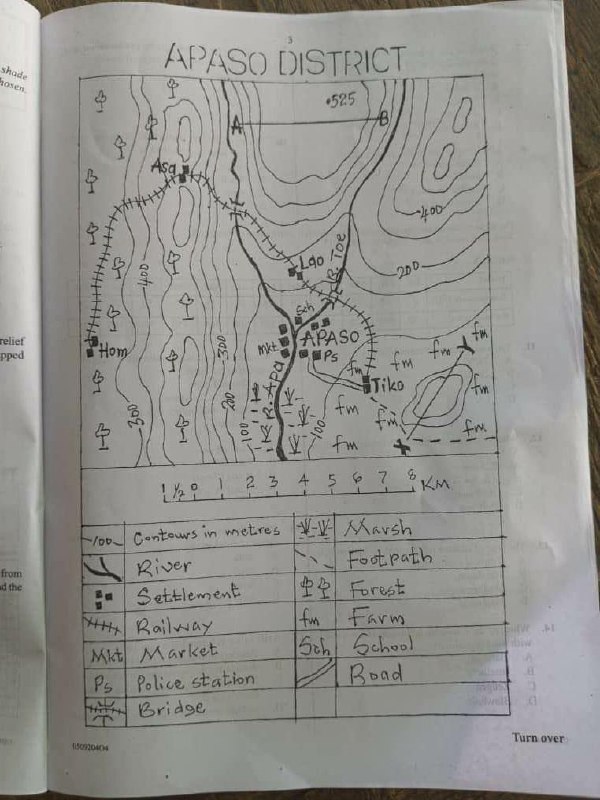 shade
hosen.
3
APASO DISTRICT
•525
A
B
Asa
400
400
Lao
R. Toe
200
Sch
Hom
mkt
APASO
Ps
fm
fm
fm
fm
300
200
R. Apa
Tiko
fm
fm
fm
fm
fm
300
100
100
relief
pped
1 ½ 0 1 2 3 4 5 6 7 8 KM
-100- Contours in metres
Marsh
River
Footpath
Settlement
Forest
Railway
fm Farm
Mkt Market
Sch School
Ps Police station
Road
Bridge
from
d the
050920404
Turn over